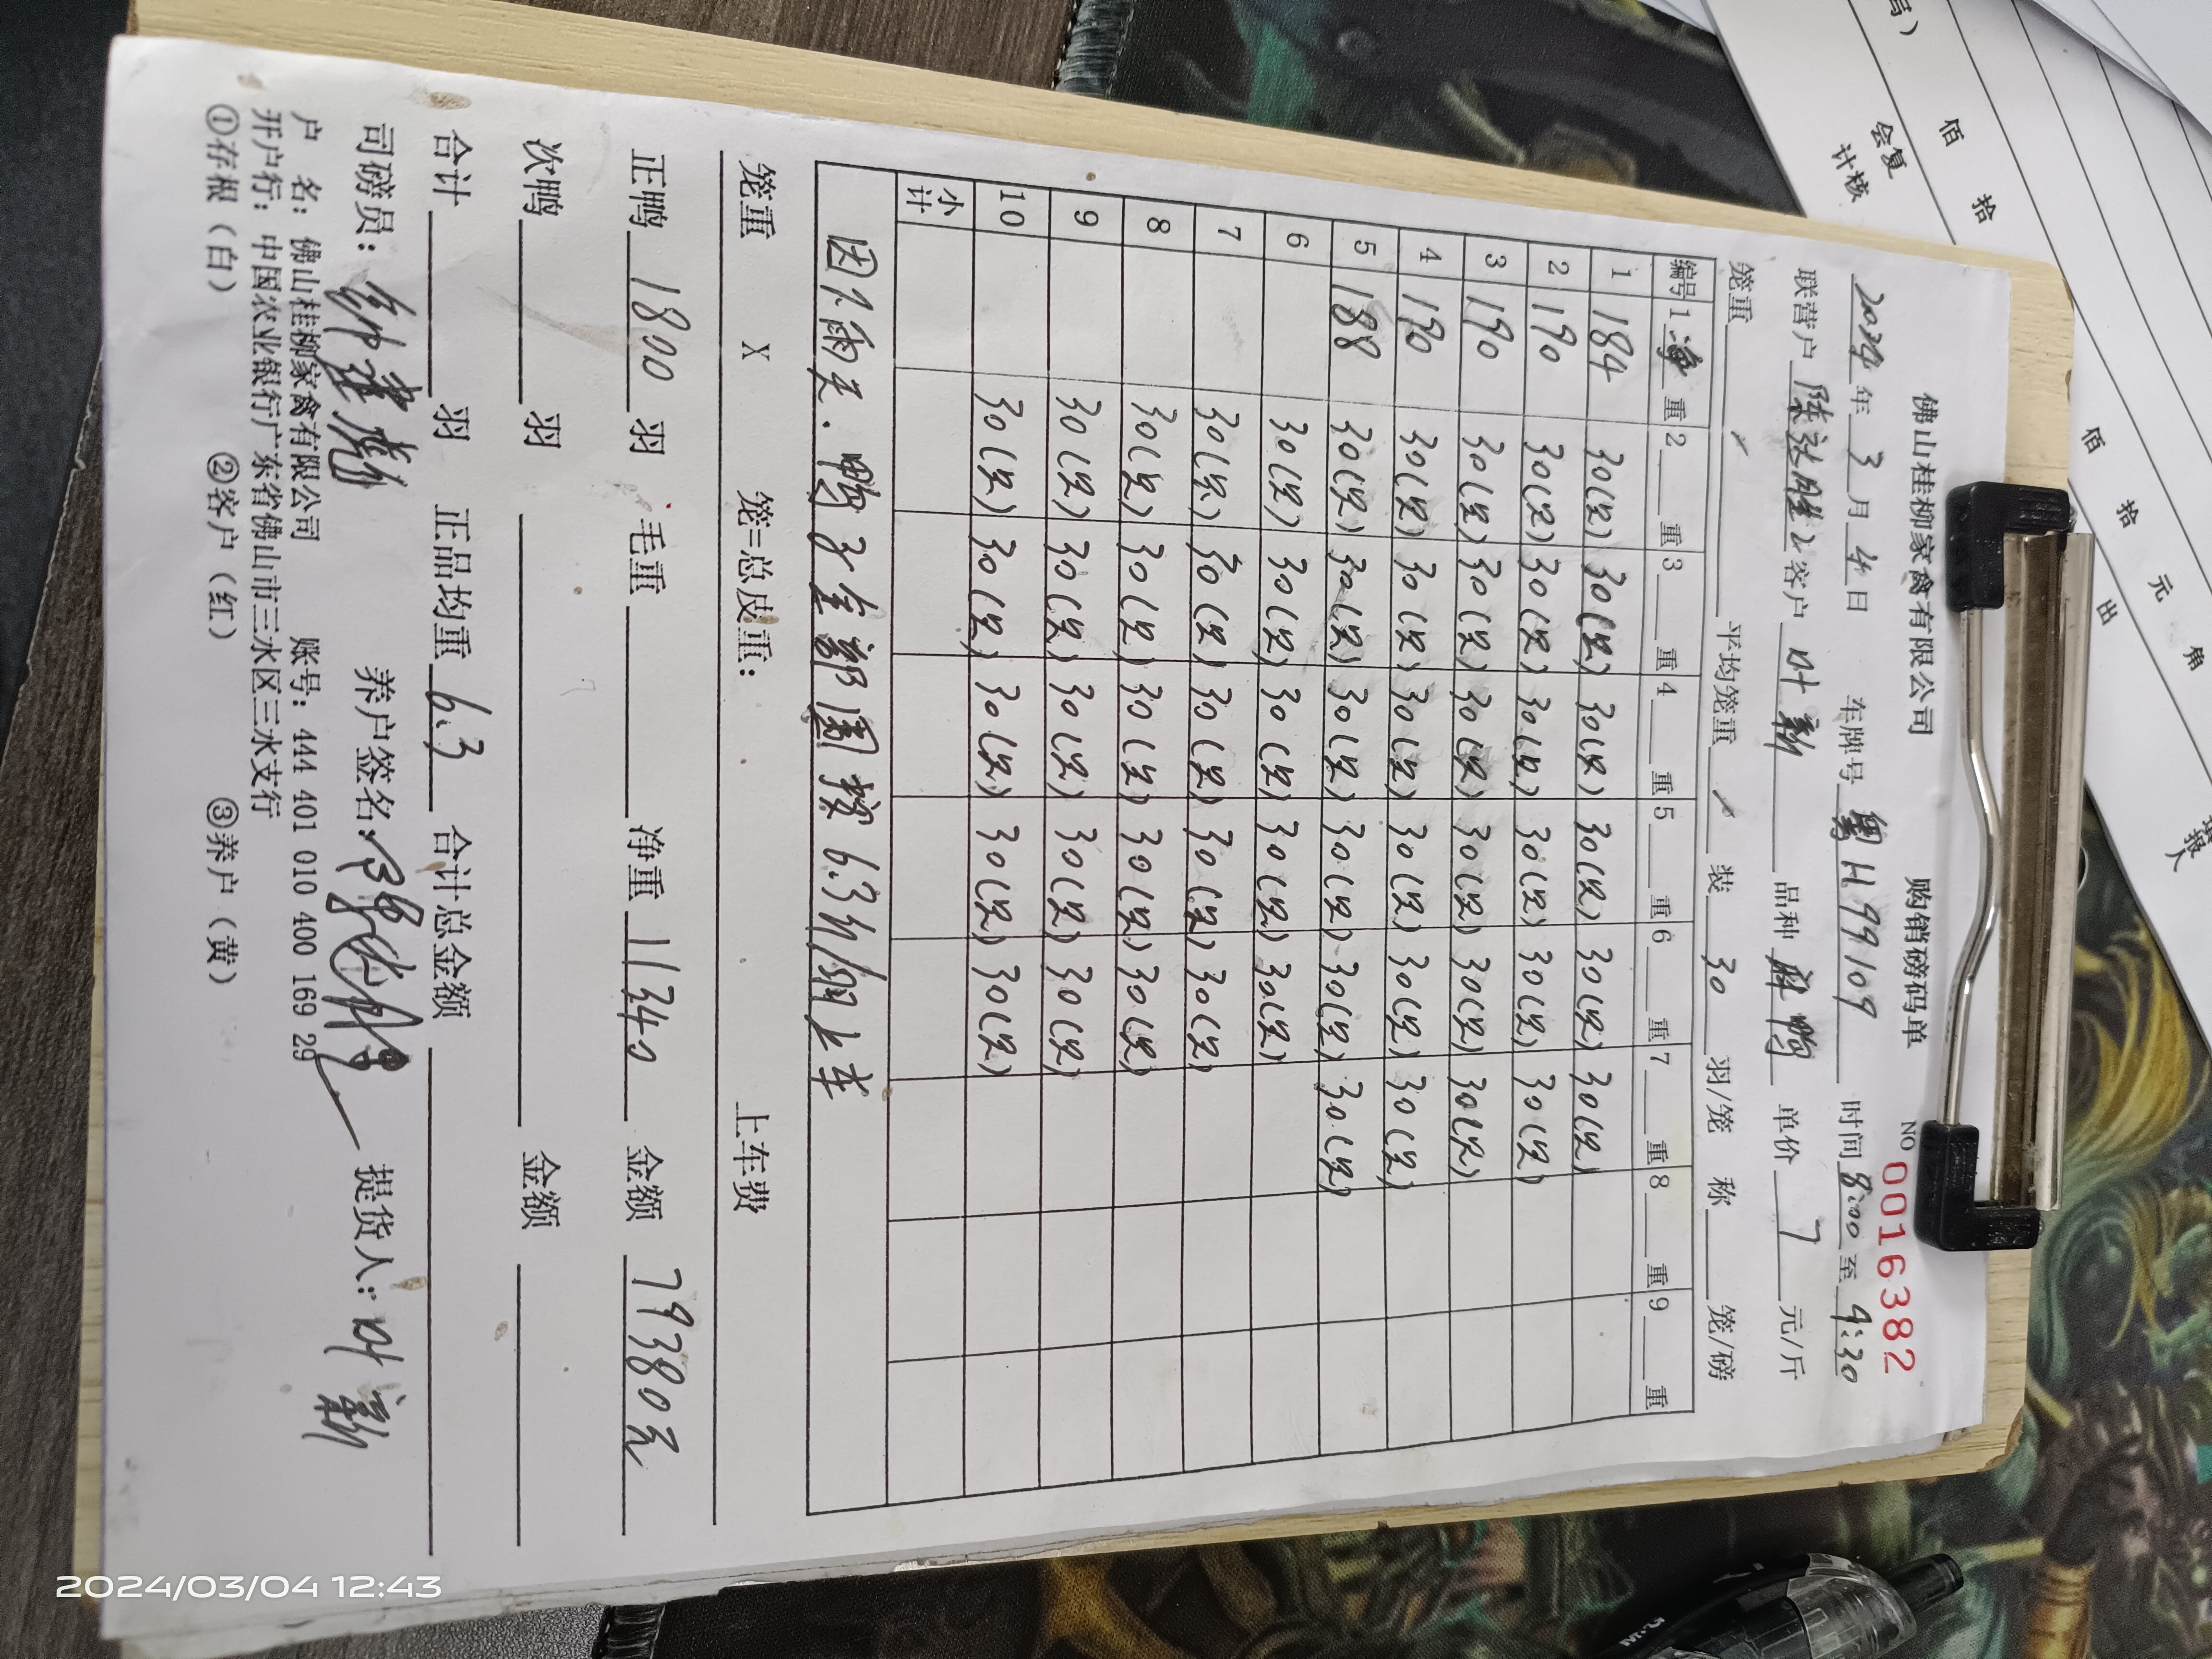 佛山桂柳家禽有限公司 购销磅码单 NO 0016382
2024年3月4日 车牌号 粤H99109 时间 8:00 至 9:30
联营户 陈达胜2 客户 叶新 品种 麻鸭 单价 7 元/斤
笼重 平均笼重 装 30 羽/笼 称 笼/磅
编号 1 净重 2 重 3 重 4 重 5 重 6 重 7 重 8 重 9 重
1 184 30(只) 30(只) 30(只) 30(只) 30(只) 30(只)
2 190 30(只) 30(只) 30(只) 30(只) 30(只) 30(只)
3 190 30(只) 30(只) 30(只) 30(只) 30(只) 30(只)
4 190 30(只) 30(只) 30(只) 30(只) 30(只) 30(只)
5 188 30(只) 30(只) 30(只) 30(只) 30(只) 30(只)
6 30(只) 30(只) 30(只) 30(只) 30(只)
7 30(只) 30(只) 30(只) 30(只) 30(只)
8 30(只) 30(只) 30(只) 30(只) 30(只)
9 30(只) 30(只) 30(只) 30(只) 30(只)
10 30(只) 30(只) 30(只) 30(只) 30(只)
小计
因下雨天.鸭子全部围 按6.3斤/羽上车
笼重 X 笼=总皮重: 上车费
正鸭 1800 羽 毛重 净重 11340 金额 79380元
次鸭 羽 金额
合计 羽 正品均重 6.3 合计总金额
司磅员: 养户签名: 提货人: 叶新
户 名: 佛山桂柳家禽有限公司 账号: 444 401 010 400 169 29
开户行: 中国农业银行广东省佛山市三水区三水支行
①存根(白) ②客户(红) ③养户(黄)
会计
复核
佰
拾
佰
拾
元
角
出
报
人
2024/03/04 12:43